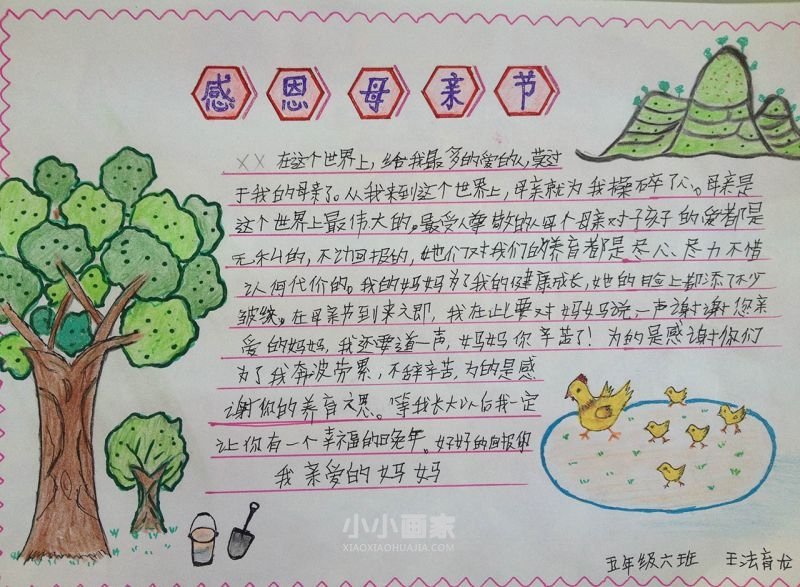 感恩母亲节
×× 在这个世界上，给我最多的爱的人，莫过
于我的母亲了。从我来到这个世界上，母亲就为我操碎了心。母亲是
这个世界上最伟大的。最受人尊敬的人。每个母亲对子孩子的爱都是
无私的，不动回报的，她们对我们的养育都是尽心、尽力不惜
认何代价的。我的妈妈为了我的健康成长，她的脸上都添了不少
皱纹。在母亲节到来之即，我在此要对妈妈说一声谢谢您亲
爱的妈妈，我还要道一声，妈妈你辛苦了！为的是感谢你们
为了我奔波劳累，不辞辛苦，为的是感
谢你的养育之恩。等我长大以后我一定
让你有一个幸福的晚年。好好的回报你
我亲爱的妈妈
小小画家
XIAOXIAOHUAJIA.COM
五年级六班 王法育龙